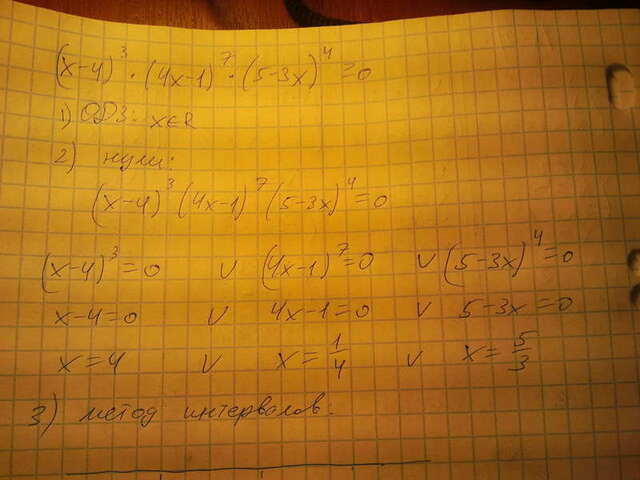 (x-4)³ · (4x-1)⁷ · (5-3x)⁴ = 0
1) ОДЗ: x∈R
2) нули:
(x-4)³ (4x-1)⁷ (5-3x)⁴ = 0
(x-4)³ = 0 ∨ (4x-1)⁷ = 0 ∨ (5-3x)⁴ = 0
x-4=0 ∨ 4x-1=0 ∨ 5-3x=0
x=4 ∨ x=1/4 ∨ x=5/3
3) метод интервалов.